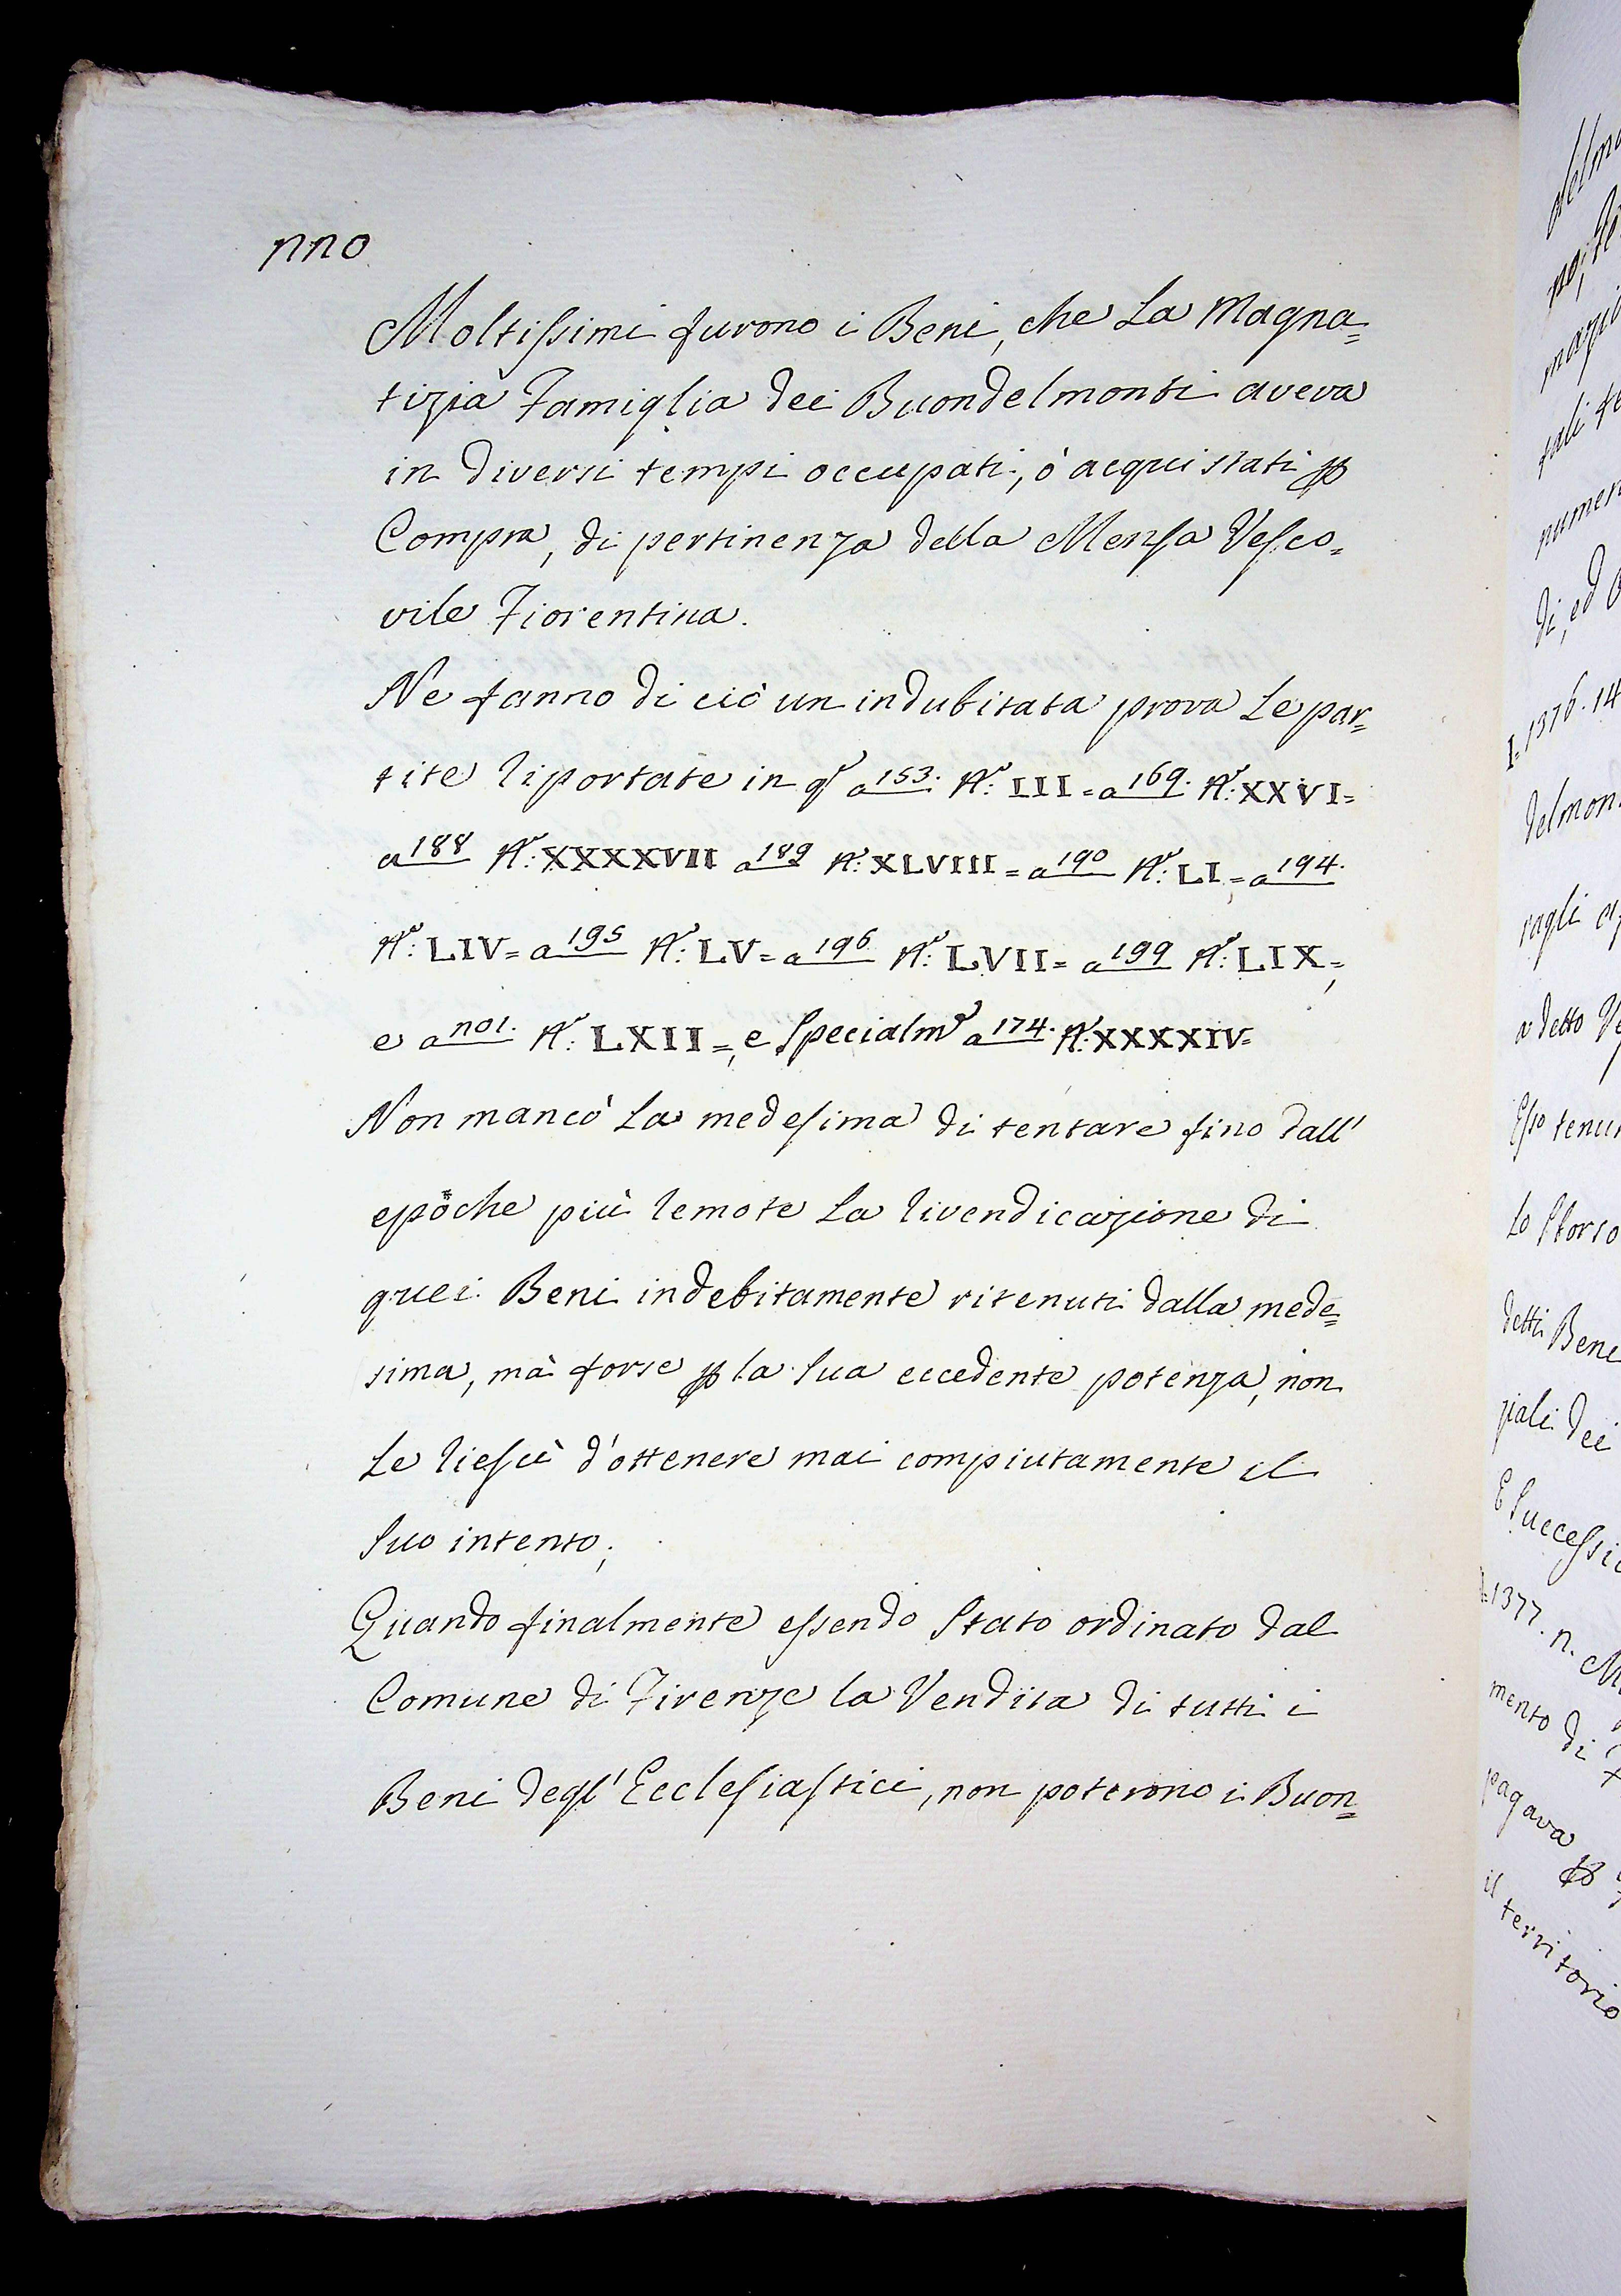 nno
Moltissimi furono i Beni, che La Magna=
tizia Famiglia dei Buondelmonti aveva
in diversi tempi occupati, ò acquistati ꝑ
Compra, di pertinenza della Mensa Vesco=
vile Fiorentina.
Ne fanno di ciò un indubitata prova Le par=
tite riportate in qᵒ a 153. Nº: III = a 169. Nº: XXVI =
a 188 Nº: XXXXVII a 189 Nº: XLVIII = a 190 Nº: LI = a 194.
Nº: LIV = a 195 Nº: LV = a 196 Nº: LVII = a 199 Nº: LIX =,
e a no1. Nº: LXII =, e Specialmᵉ a 174. Nº: XXXXIV =
Non mancò La medesima di tentare fino dall'
epoche più remote La rivendicazione di
quei Beni indebitamente ritenuti dalla mede=
sima, mà forse ꝑ la Sua eccedente potenza, non
Le riescì d'ottenere mai compiutamente il
Suo intento;
Quando finalmente essendo Stato ordinato dal
Comune di Firenze la Vendita di tutti i
Beni degl' Ecclesiastici, non poterono i Buon=
numer
di, ed
1376. 14
delmon
ragli
a detto
Esso tenu
Lo Storso
detti Bene
ziali dei
E Successi
1377. n.
mento di
pagava
il territorio